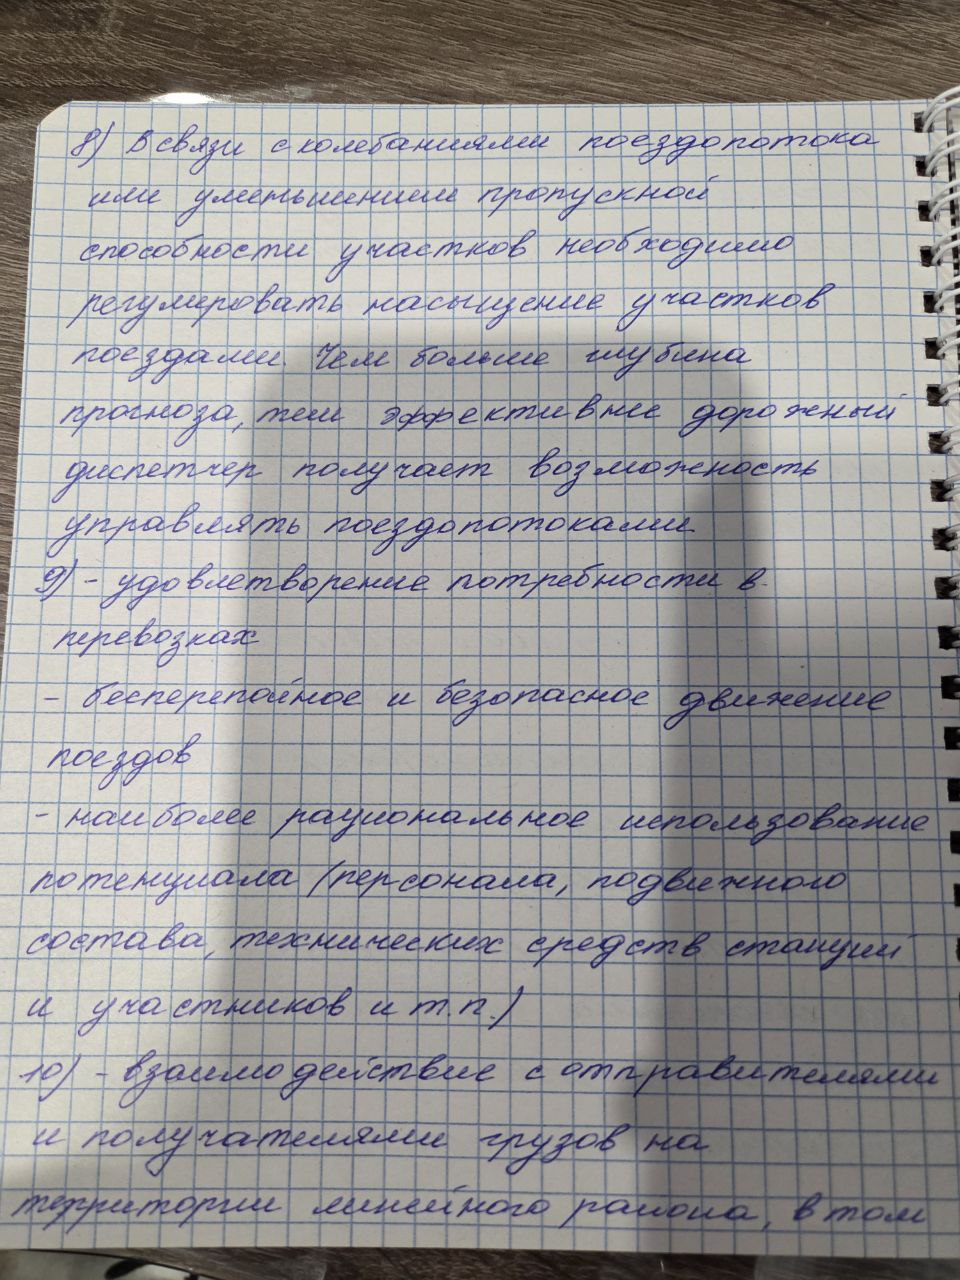 8) В связи с колебаниями поездопотока
или уменьшением пропускной
способности участков необходимо
регулировать насыщение участков
поездами. Чем больше глубина
прогноза, тем эффективнее дорожный
диспетчер получает возможность
управлять поездопотоками.
9) - удовлетворение потребности в
перевозках
- бесперебойное и безопасное движение
поездов
- наиболее рациональное использование
потенциала (персонала, подвижного
состава, технических средств станций
и участников и т.п.)
10) - взаимодействие с отправителями
и получателями грузов на
территории линейного района, в том